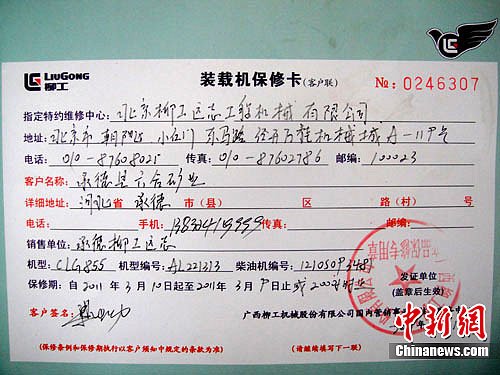 LIUGONG
柳工
装载机保修卡(客户联)
№: 0246307
指定特约维修中心: 北京柳工远志工程机械有限公司
地址: 北京市 朝阳区 小红门
电话: 010-87608025 传真: 010-87602786 邮编: 100023
客户名称: 承德 六合矿业
详细地址: 河北省 承德 市(县) 区 路(村) 号
电话: 手机: 传真: 邮编:
销售单位: 承德柳工远志
机型: CLG855 机型编号: AL221313 柴油机编号:
发证单位
(盖章后生效)
保修期: 自 2011 年 3 月 10 日起至 2011 年 3 月 9 日止或 2000
客户签名:
广西柳工机械股份有限公司国内营销事业
(保修条例和保修期执行以客户须知中规定的条款为准) (请继续填写下一联)
品保修专用章
中新网
www.chinanews.com